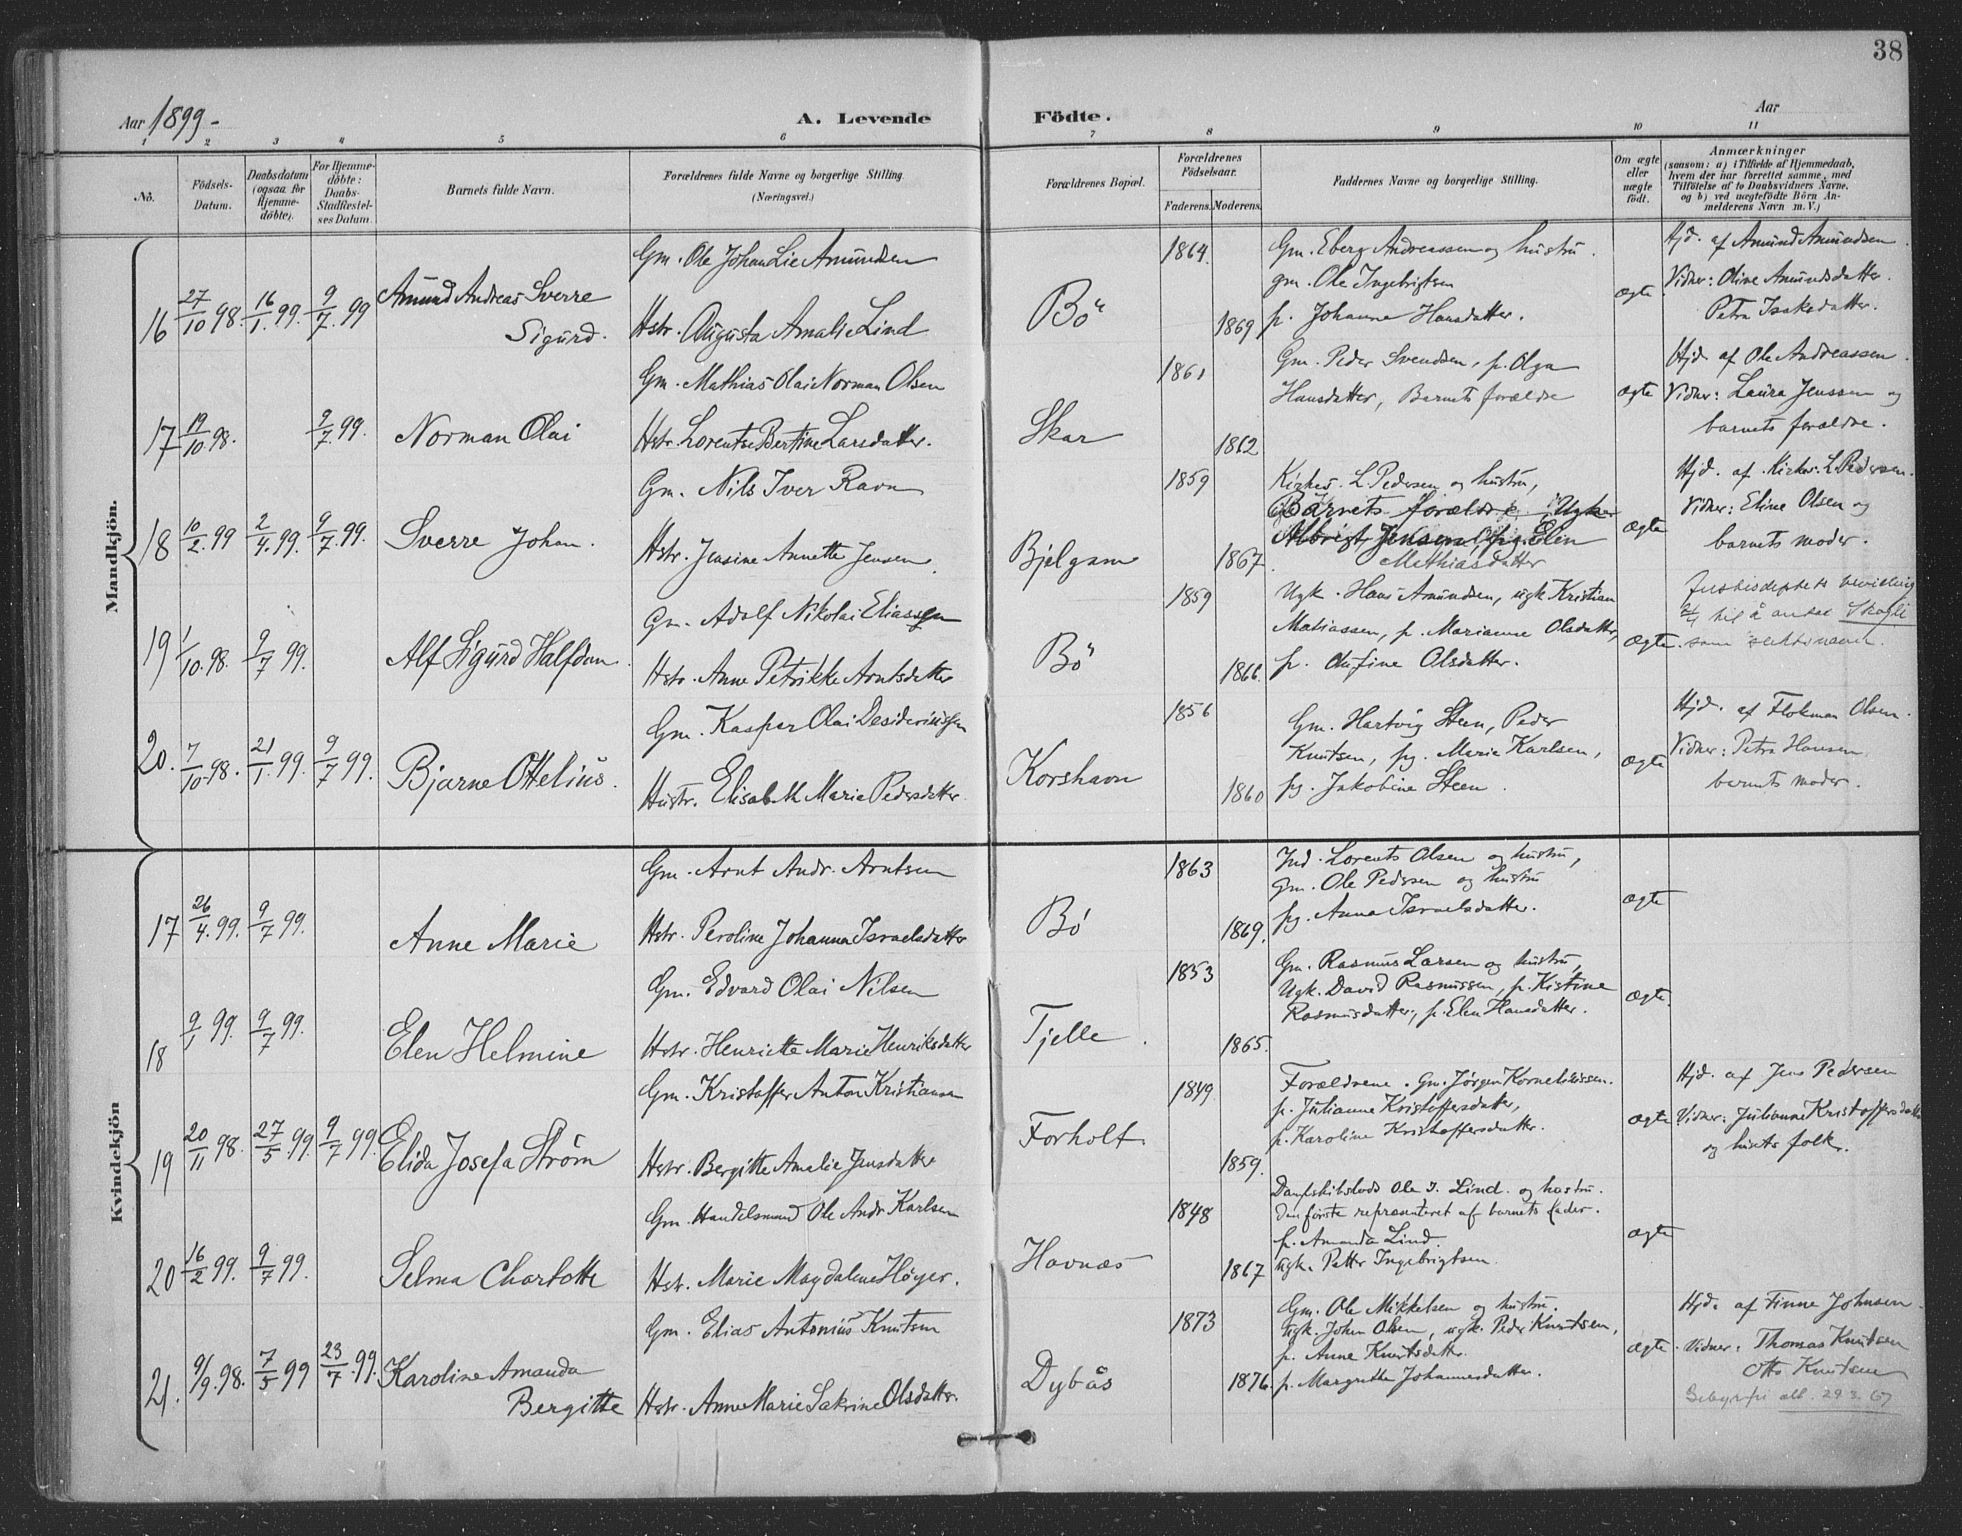 38
Aar 1899-
A. Levende Födte.
Aar
1 2 3 4 5 6 7 8 9 10 11
No.
Födsels-Datum.
Daabsdatum (ogsaa for Hjemme-döbte).
For Hjemme-döbte: Daabs-Stadfæstel-ses Datum.
Barnets fulde Navn.
Forældrenes fulde Navne og borgerlige Stilling. (Næringsvei.)
Forældrenes Bopæl.
Forældrenes Födselsaar.
Faderens. Moderens.
Faddernes Navne og borgerlige Stilling.
Om ægte eller uægte födt.
Anmærkninger (saasom: a) i Tilfælde af Hjemmedaab, hvem der har forrettet samme, med Tilföielse af to Daabsvidners Navne, og b) ved uægtefödte Börn An-melderens Navn m. V.)
Mandkjön.
16 27/10 98. 16/1 99. 9/7 99
Amund Andreas Sverre
Sigurd.
Gm. Ole Johan Lie Amundsen
Hstr. Augusta Amalie Lind
Bö
1864.
1869
Gm. Eberg Andreassen og hustru.
gm. Ole Ingebrigtsen
p. Johanna Hansdatter.
ægte
Hjd. af Amund Amundsen.
Vidner: Oline Amundsdatter.
Petra Isaksdatter.
17 19/10 98. 9/7 99.
Norman Olai
Gm. Mathias Olai Norman Olsen
Hstr. Lorentse Bertine Larsdatter.
Skar
1861
1862
Gm. Peder Svendsen, p. Olga
Hansdatter, Barnets forældre
ægte
Hjd. af Ole Andreassen.
Vidner: Laura Jenssen og
barnets forældre.
18 10/2 99 2/4 99. 9/7 99.
Sverre Johan.
Gm. Nils Iver Ravn
Hstr. Jensine Annette Jensen.
Bjelgam
1859
1867
Kirkes. L. Pedersen og hustru,
Barnets forældre, Ugkar
Albrigt Jensen, pig. Elin
Mathiasdatter
ægte
Hjd. af Kirkes. L. Pedersen.
Vidner: Eline Olsen og
barnets moder.
19 1/10 98. 9/7 99.
Alf Sigurd Halfdan.
Gm. Adolf Nikolai Eliassen
Hstr. Anne Petrikke Arntsdatter
Bö
1859
1866.
Ugk. Hans Amundsen, ugk Kristian
Matiassen, p. Marianne Olsdatter,
p. Olufine Olsdatter.
ægte.
til å antat Skogli
som slektsnavn.
20. 7/10 98. 21/1 99. 9/7 99.
Bjarne Ottelius.
Gm. Kasper Olai Desideriussen
Hustr. Elisabeth Marie Pedersdatter
Korshavn
1856
1860
Gm. Hartvig Steen, Peder
Knutsen, pg. Marie Karlsen,
pg. Jakobine Steen.
ægte
Hjd. af Flokman Olsen.
Vidner: Petra Hansen
barnets moder.
Kvindekjön
17 26/4 99. 9/7 99.
Anne Marie
Gm. Arnt Andr. Arntsen
Hstr. Peroline Johanna Israelsdatter
Bö
1863
1869.
Ind. Lorents Olsen og hustru,
gm. Ole Pedersen og hustru
pg. Anna Israelsdatter.
ægte
18 9/1 99. 9/7 99.
Elen Helmine
Gm. Edvard Olai Nilsen
Hstr. Henriette Marie Henriksdatter
Tjelle.
1853
1865.
Gm. Rasmus Larsen og hustru,
Ugk. David Rasmussen, p. Kistine
Rasmusdatter, p. Elen Hansdatter.
ægte.
19 20/11 98. 27/5 99. 9/7 99.
Elida Josefa Strøm
Gm. Kristoffer Anton Kristiansen
Hstr. Bergitte Amalie Jensdatter
Forholt.
1849
1859.
Forældrene. Gm. Jørgen Korneliussen.
p. Julianne Kristoffersdatter,
p. Karoline Kristoffersdatter.
ægte
Hjd. af Jens Pedersen
Vidner: Julianne Kristoffersdatter
og husets folk.
20 16/2 99. 9/7 99.
Selma Charlotte
Gm. Handelsmand Ole Andr Karlsen
Hstr. Marie Magdalene Høyer.
Havnæs
1848
1867
Damskibslods Ole J. Lind. og hustru.
den første repræsenteret af barnets fader.
p. Amanda Lind.
ugk. Petter Ingebrigtsen.
ægte
21. 9/9 98. 7/5 99 23/7 99.
Karoline Amanda
Bergitte
Gm. Elias Antonius Knutsen
Hstr. Anne Marie Sakrine Olsdatter.
Dybås
1873
1876.
Gm. Ole Mikkelsen og hustru.
Ugk. Johan Olsen, ugk. Peder Knutsen,
p. Anne Knutsdatter.
p. Margrethe Johannesdatter.
ægte.
Hjd. af Finne Johnsen.
Vidner: Thomas Knutsen
Otto Knutsen
att. 29.3.67